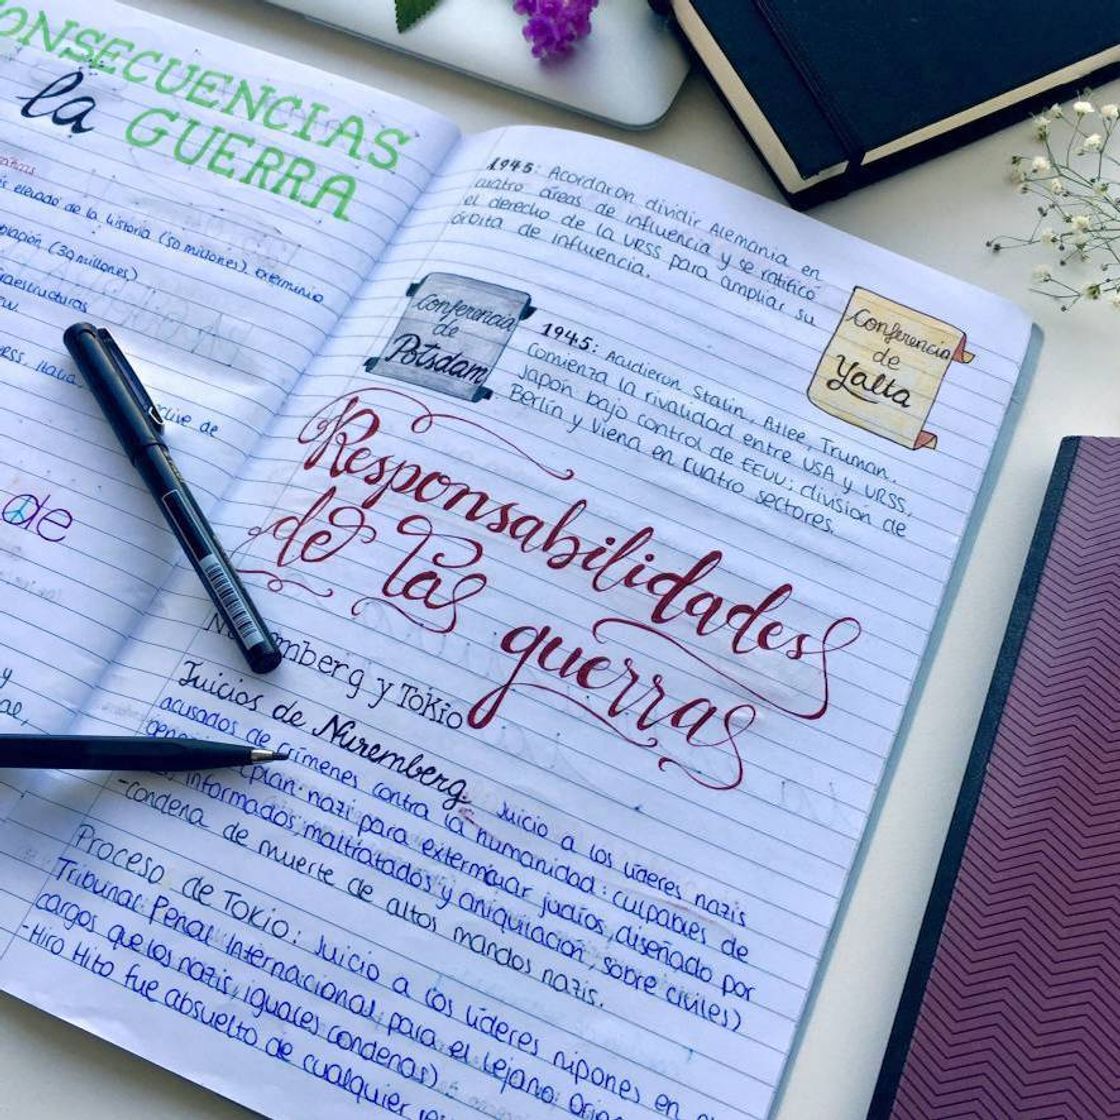 CONSECUENCIAS
la GUERRA
elevado de la historia (50 millones) exterminio
(30 millones)
URSS, Italia.
de
de
y
1945: Acordaron dividir Alemania en
cuatro áreas de influencia y se ratificó
el derecho de la URSS para ampliar su
órbita de influencia.
Conferencia
de
Yalta
Conferencia
de
Potsdam
1945: Acudieron Stalin, Atlee, Truman.
Comienza la rivalidad entre USA y URSS,
Japón bajo control de EEUU; división de
Berlín y Viena en cuatro sectores.
Responsabilidades
de las
guerras
Nuremberg y Tokio
Juicios de Nuremberg: Juicio a los líderes nazis
acusados de crímenes contra la humanidad: culpables de
(plan nazi para exterminar judíos, diseñado por
informados maltratados y aniquilación, sobre civiles)
-condena de muerte de altos mandos nazis.
Proceso de Tokio: Juicio a los líderes nipones en
Tribunal Penal Internacional para el Lejano
cargos que los nazis, iguales condenas)
-Hiro Hito fue absuelto de cualquier